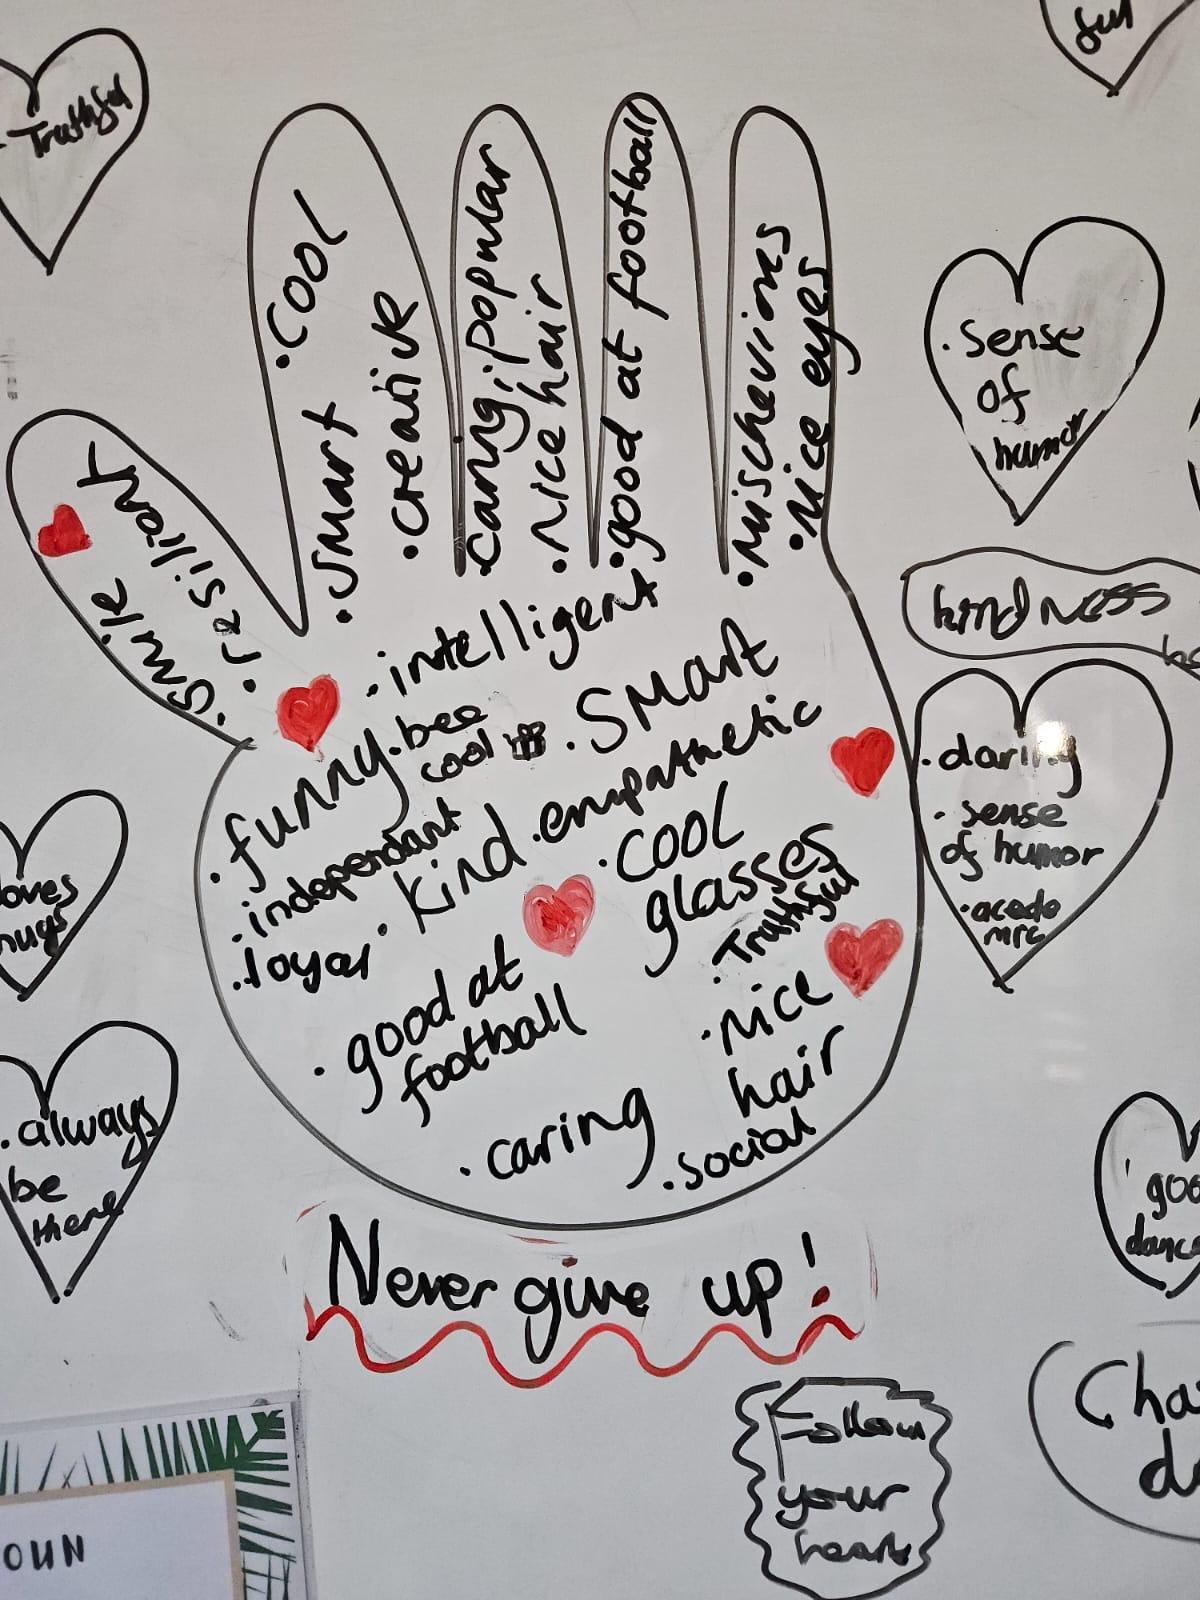 Truthful
ful
• cool
• smart
• creative
• caring, popular
• nice hair
• good at football
• mischevious
• nice eyes
• smile
• resilient
• sense
of
humor
kindness
• intelligent
• bee
cool
• smart
• funny
• empathetic
• independant
• kind
• cool
glasses
• loyal
• Truthful
• good at
football
• nice
hair
• caring
• social
• daring
• sense
of humor
• acade
mic
loves
hugs
• always
be
there
Never give up!
Follow
your
heart
OUN